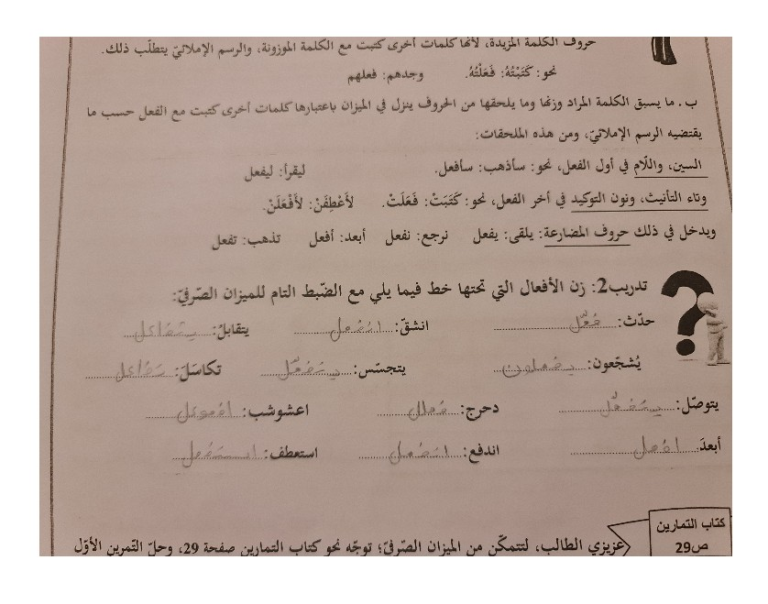 حروف الكلمة المزيدة، لأنها كلمات أخرى كتبت مع الكلمة الموزونة، والرسم الإملائيّ يتطلّب ذلك.
نحو: كَتَبْتُهُ: فَعَلْتُهُ. وجدهم: فعلهم
ب. ما يسبق الكلمة المراد وزنها وما يلحقها من الحروف ينزل في الميزان باعتبارها كلمات أخرى كتبت مع الفعل حسب ما
يقتضيه الرسم الإملائيّ، ومن هذه الملحقات:
السين، واللّام في أول الفعل، نحو: سأذهب: سأفعل. ليقرأ: ليفعل
وتاء التأنيث، ونون التوكيد في أخر الفعل، نحو: كَتَبَتْ: فَعَلَتْ. لأَعْطِفَنْ: لأَفْعَلَنْ.
ويدخل في ذلك حروف المضارعة: يلقى: يفعل نرجع: نفعل أبعد: أفعل تذهب: تفعل
تدريب2: زن الأفعال التي تحتها خط فيما يلي مع الضّبط التام للميزان الصّرفيّ:
حدّث: فعّل انشقّ: انفعل يتقابلُ: يتفاعل
يُشجّعون: يفعلون يتجسّس: يتفعّل تكاسَلَ: تفاعل
يتوصّل: يتفعّل دحرج: فعلل اعشوشب: افعوعل
أبعدَ: افعل اندفع: انفعل استعطف: استفعل
كتاب التمارين
ص29
عزيزي الطالب، لتتمكّن من الميزان الصّرفيّ؛ توجّه نحو كتاب التمارين صفحة 29، وحلّ التّمرين الأوّل